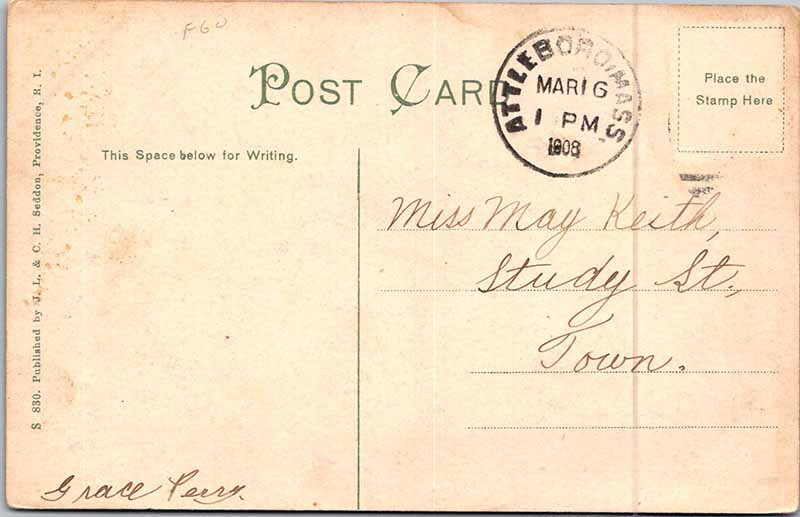 F60
POST CARD
ATTLEBORO, MASS.
MAR 16
1 PM
1908
Place the
Stamp Here
This Space below for Writing.
Miss May Keith,
Study St.,
Town.
Grace Perry.
S 830. Published by J. L. & C. H. Seddon, Providence, R. I.